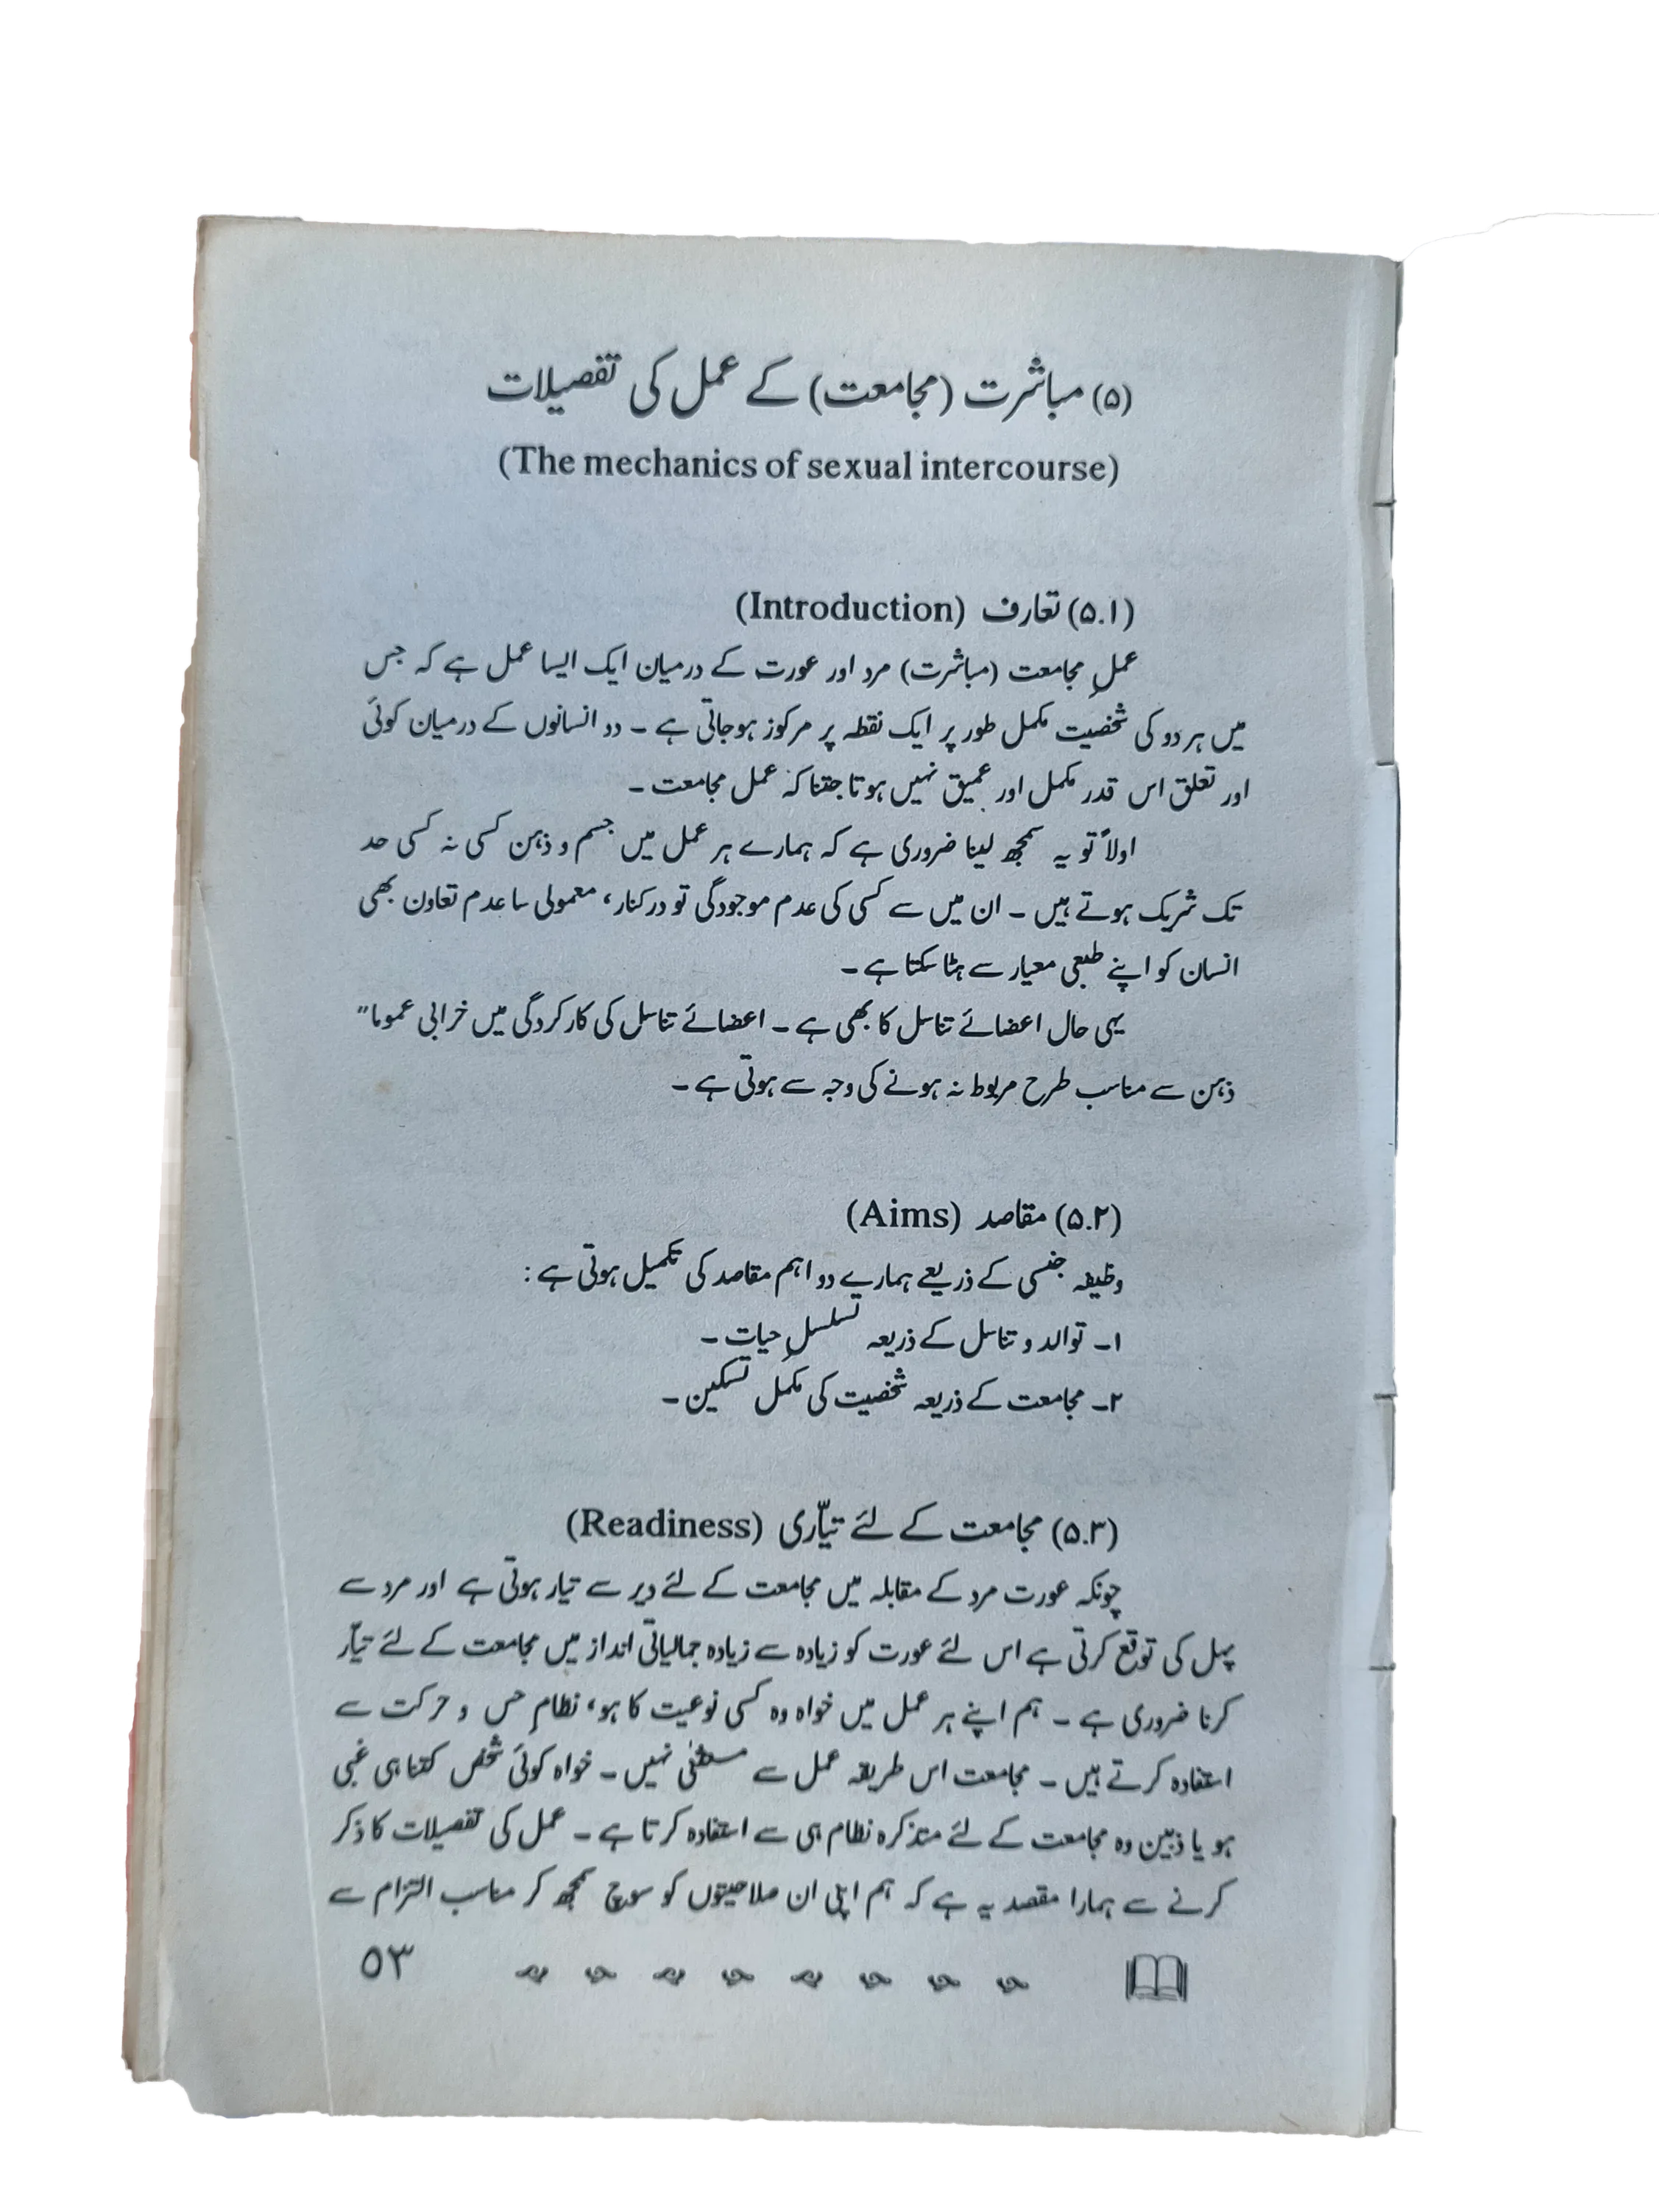 (۵) مباشرت (مجامعت) کے عمل کی تفصیلات
(The mechanics of sexual intercourse)
(۵.۱) تعارف (Introduction)
عملِ مجامعت (مباشرت) مرد اور عورت کے درمیان ایک ایسا عمل ہے کہ جس
میں ہر دو کی شخصیت مکمل طور پر ایک نقطہ پر مرکوز ہوجاتی ہے ۔ دو انسانوں کے درمیان کوئی
اور تعلق اس قدر مکمل اور عمیق نہیں ہوتا جتنا کہ عمل مجامعت ۔
اولاً تو یہ سمجھ لینا ضروری ہے کہ ہمارے ہر عمل میں جسم و ذہن کسی نہ کسی حد
تک شریک ہوتے ہیں ۔ ان میں سے کسی کی عدم موجودگی تو درکنار، معمولی سا عدم تعاون بھی
انسان کو اپنے طبعی معیار سے ہٹا سکتا ہے ۔
یہی حال اعضائے تناسل کا بھی ہے ۔ اعضائے تناسل کی کارکردگی میں خرابی عموما"
ذہن سے مناسب طرح مربوط نہ ہونے کی وجہ سے ہوتی ہے ۔
(۵.۲) مقاصد (Aims)
وظیفہ جنسی کے ذریعے ہمارے دو اہم مقاصد کی تکمیل ہوتی ہے :
۱۔ توالد و تناسل کے ذریعہ تسلسلِ حیات ۔
۲۔ مجامعت کے ذریعہ شخصیت کی مکمل تسکین ۔
(۵.۳) مجامعت کے لئے تیاّری (Readiness)
چونکہ عورت مرد کے مقابلہ میں مجامعت کے لئے دیر سے تیار ہوتی ہے اور مرد سے
پہل کی توقع کرتی ہے اس لئے عورت کو زیادہ سے زیادہ جمالیاتی انداز میں مجامعت کے لئے تیاّر
کرنا ضروری ہے ۔ ہم اپنے ہر عمل میں خواہ وہ کسی نوعیت کا ہو، نظامِ حس و حرکت سے
استفادہ کرتے ہیں ۔ مجامعت اس طریقہ عمل سے مستثنیٰ نہیں ۔ خواہ کوئی شخص کتنا ہی غبی
ہو یا ذہین وہ مجامعت کے لئے متذکرہ نظام ہی سے استفادہ کرتا ہے ۔ عمل کی تفصیلات کا ذکر
کرنے سے ہمارا مقصد یہ ہے کہ ہم اپنی ان صلاحیتوں کو سوچ سمجھ کر مناسب التزام سے
۵۳